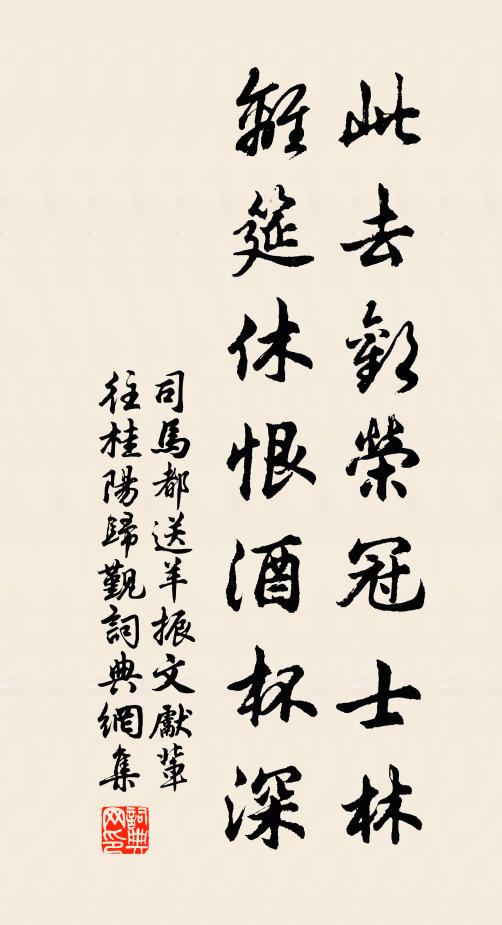 此去歡榮冠士林
離筵休恨酒杯深
司馬都送羊振文獻輩
往桂陽歸覲詞典網集
詞典網印